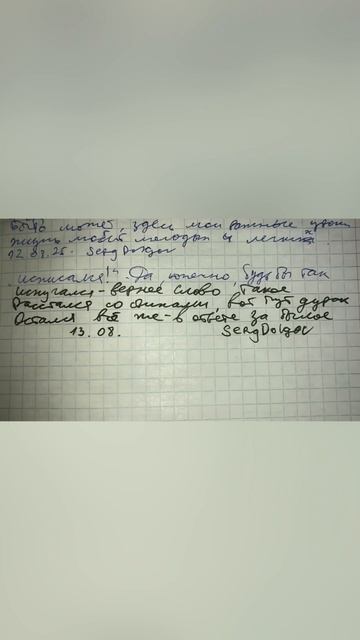 Быть может, здесь мои важные уроки
жизнь любит молодых и легких
12.08.25. SergDolgov
"исписался!" Да конечно, будь бы так
испугался - верное слово, такое
Расстался со стихами, вот тут дурак
Остался всё же - в ответе за былое
13.08. SergDolgov